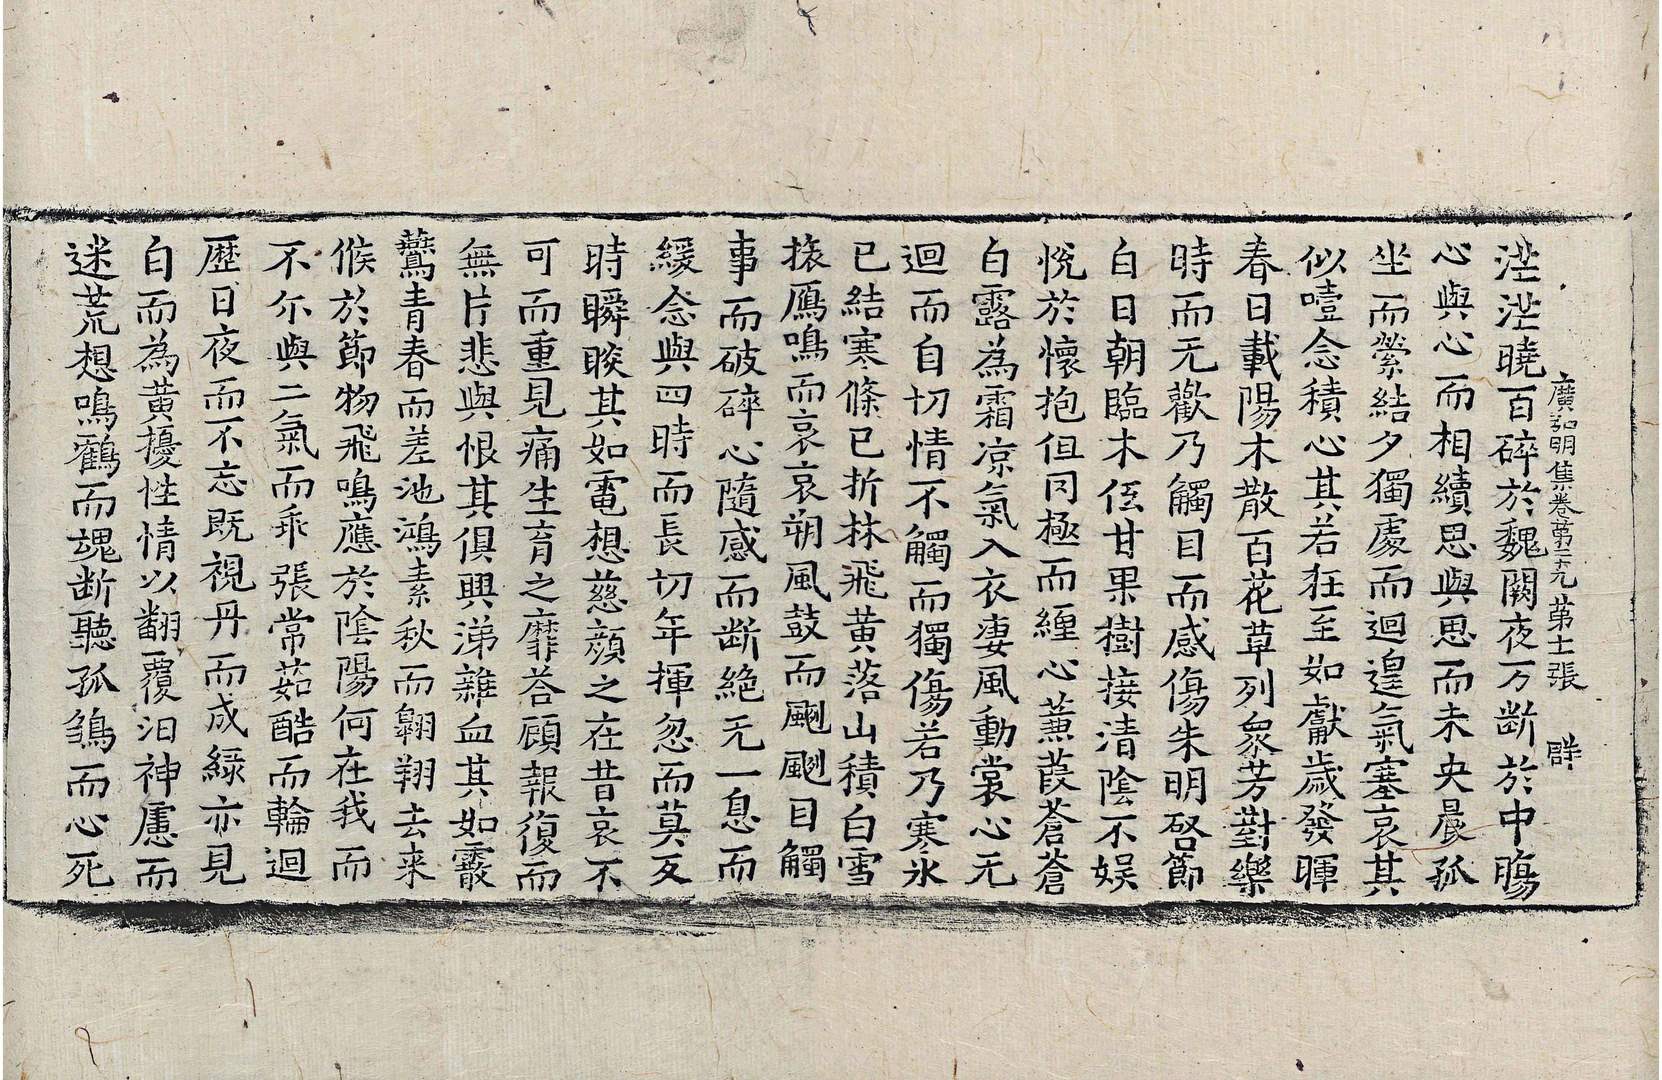 廣弘明集卷第二十九 第十二張 群
茫茫曉百碎於魏闕夜万斷於中腸
心與心而相續思與思而未央晨孤
坐而縈結夕獨處而迴遑氣塞哀其
似噎念積心其若狂至如獻歲發暉
春日載陽木散百花草列衆芳對樂
時而无歡乃觸目而感傷朱明啓節
白日朝臨木低甘果樹接清陰不娛
悅於懷抱但罔極而纏心蒹葭蒼蒼
白露為霜凉氣入衣凄風動裳心无
迴而自切情不觸而獨傷若乃寒氷
已結寒條已折林飛黃落山積白雪
猿鴈鳴而哀哀朔風鼓而颲颲目觸
事而破碎心隨感而断絶无一息而
緩念與四時而長切年揮忽而莫反
時瞬睒其如電想慈顔之在昔哀不
可而重見痛生育之靡荅顧報復而
無片悲與恨其俱興涕雜血其如霰
鷰青春而差池鴻素秋而翱翔去来
候於節物飛鳴應於陰陽何在我而
不尒與二氣而乖張常茹酷而輪迴
歷日夜而不忘既視丹而成綠亦見
白而為黃擾性情以翻覆汩神慮而
迷荒想鳴鶴而魂断聽孤鶵而心死